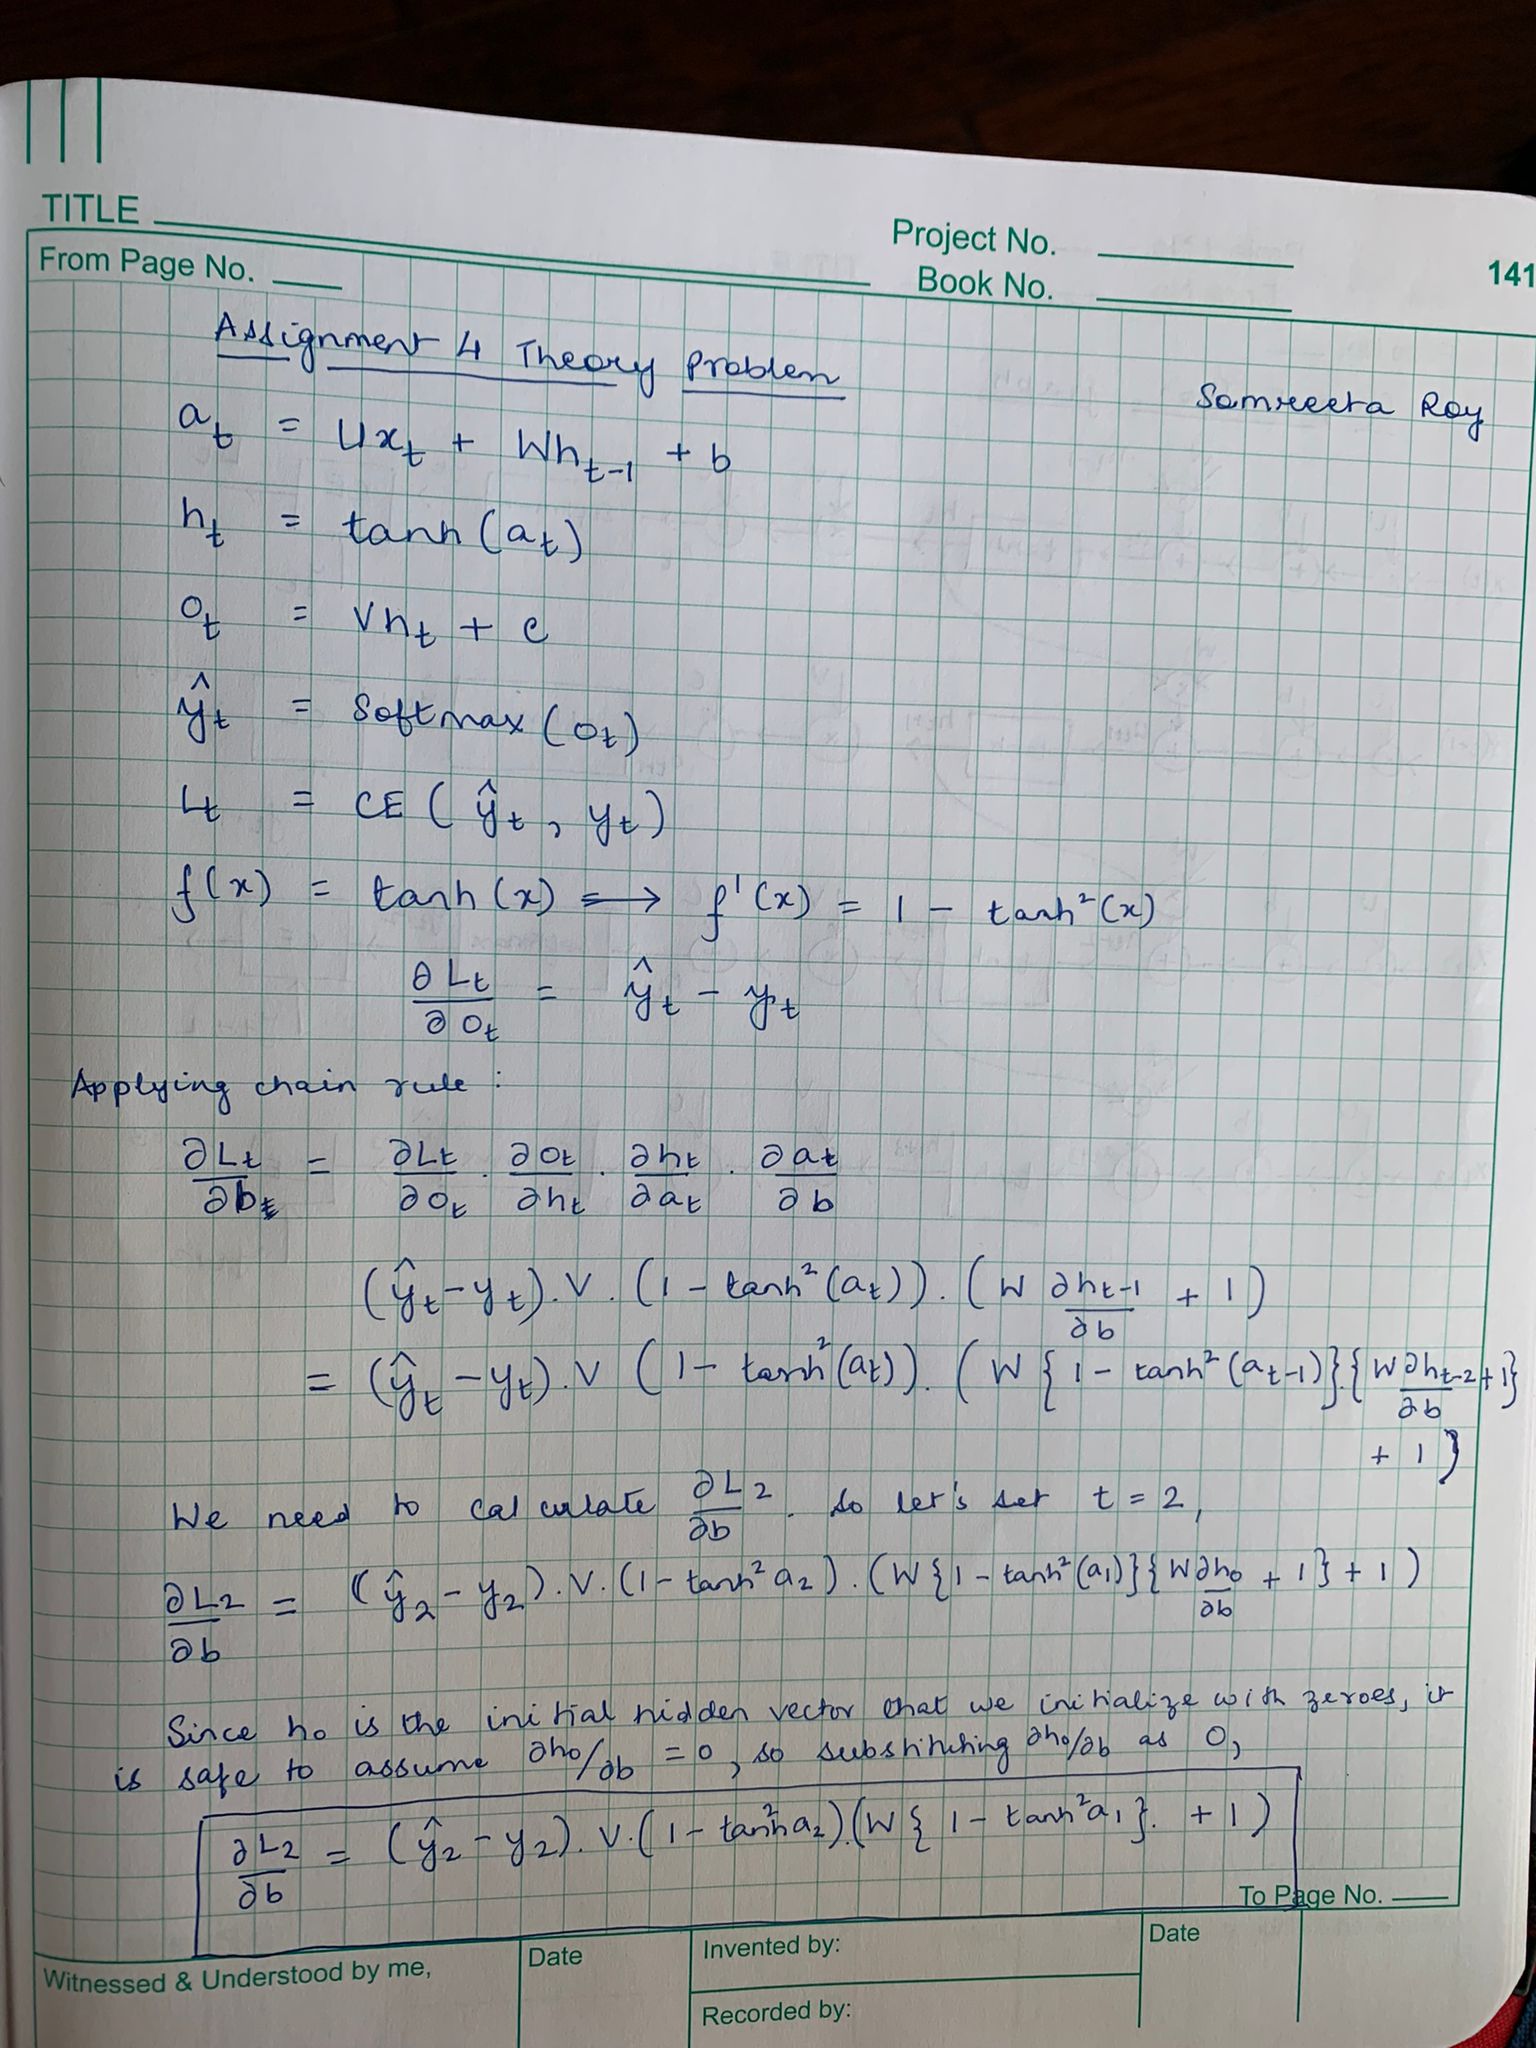 TITLE
Project No.
From Page No.
Book No.
141
Assignment 4 Theory Problem
Somreeta Roy
a_t = Ux_t + Wh_{t-1} + b
h_t = tanh (a_t)
o_t = Vh_t + c
ŷ_t = Softmax (o_t)
L_t = CE ( ŷ_t , y_t )
f(x) = tanh (x) ⟹ f'(x) = 1 - tanh²(x)
∂L_t/∂o_t = ŷ_t - y_t
Applying chain rule :
∂L_t/∂b_t = ∂L_t/∂o_t . ∂o_t/∂h_t . ∂h_t/∂a_t . ∂a_t/∂b
(ŷ_t - y_t). V . (1 - tanh²(a_t)). ( W ∂h_{t-1}/∂b + 1 )
= (ŷ_t - y_t). V ( 1 - tanh²(a_t)). ( W { 1 - tanh²(a_{t-1})}.{ W ∂h_{t-2}/∂b + 1}
+ 1 )
We need to calculate ∂L_2/∂b . So let's set t = 2,
∂L_2/∂b = (ŷ_2 - y_2). V. (1 - tanh² a_2) . (W { 1 - tanh²(a_1)} { W ∂h_0/∂b + 1 } + 1 )
Since h_0 is the initial hidden vector that we initialize with zeroes, it
is safe to assume ∂h_0/∂b = 0, so substituting ∂h_0/∂b as 0,
∂L_2/∂b = (ŷ_2 - y_2). V. ( 1 - tanh² a_2).(W { 1 - tanh² a_1 }. + 1 )
To Page No.
Witnessed & Understood by me,
Date
Invented by:
Date
Recorded by: